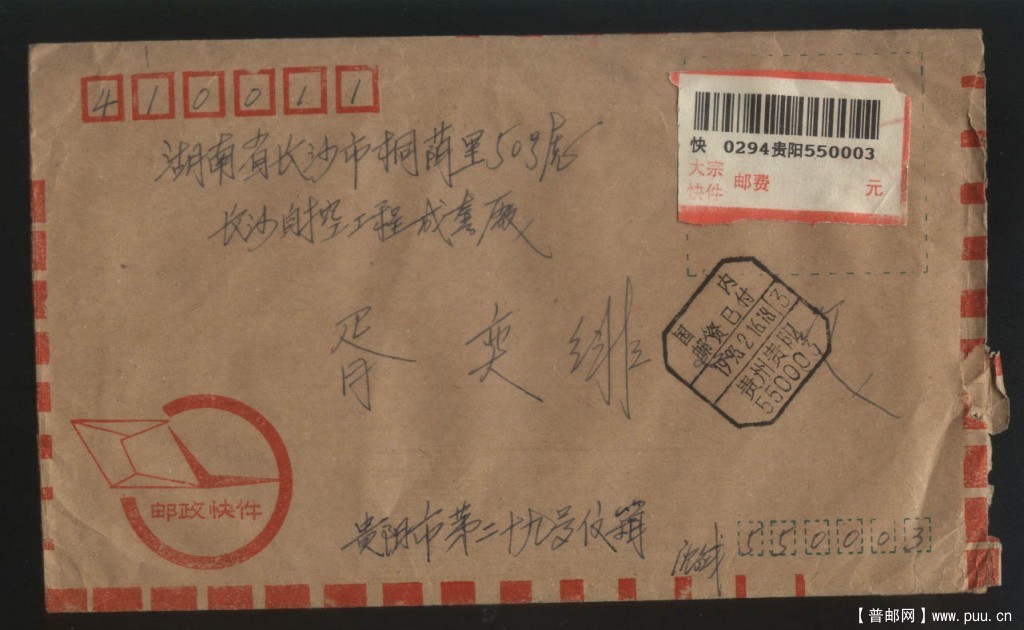 410011
快 0294贵阳550003
大宗
快件 邮费 元
湖南省长沙市桐荫里50号
长沙自控工程成套厂
国内
邮资已付
1998.2.16.18 3
贵州贵阳
550003
邮政快件
贵阳市第二十九号信箱
550003
【普邮网】www.puu.cn